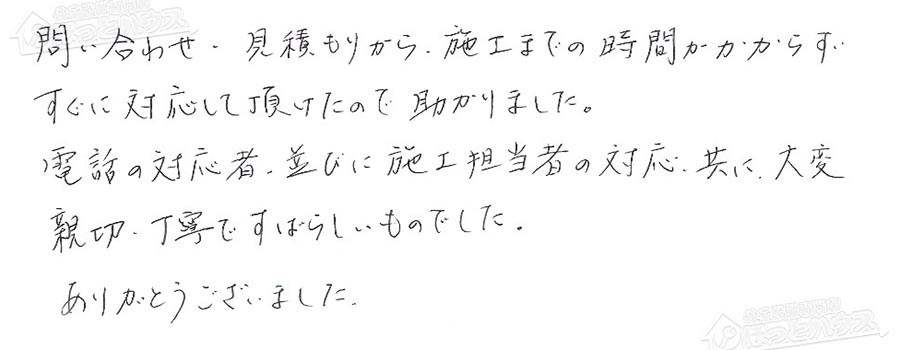 問い合わせ・見積もりから、施工までの時間がかからず、
すぐに対応して頂けたので助かりました。
電話の対応者、並びに施工担当者の対応、共に、大変
親切、丁寧ですばらしいものでした。
ありがとうございました。
ほっとハウス
ほっとハウス